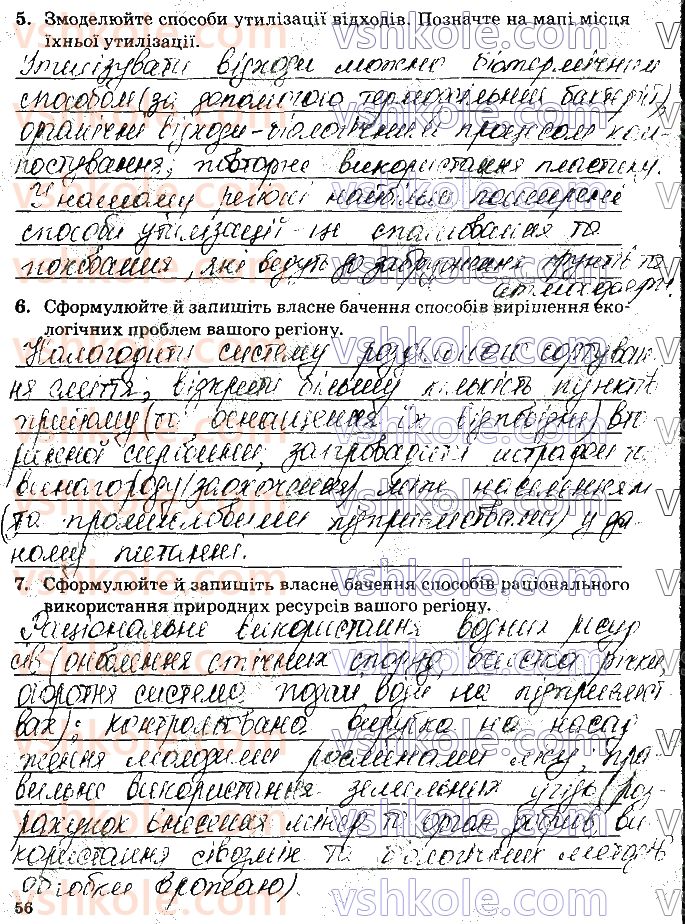 5. Змоделюйте способи утилізації відходів. Позначте на мапі місця
їхньої утилізації.
Утилізувати відходи можна біотермічним
способом (за допомогою термофільних бактерій),
органічні відходи - біологічним процесом ком
постування, повторне використання пластику.
У нашому регіоні найбільш поширені
способи утилізації - це спалювання та
поховання, які ведуть до забруднення ґрунтів та
атмосфери!
6. Сформулюйте й запишіть власне бачення способів вирішення еко-
логічних проблем вашого регіону.
Налагодити систему роздільного сортуван
ня сміття, відкрити більшу кількість пунктів
прийому (та оснащення їх відповідно) вто
ринної сировини, запровадити штрафи та
винагороду (заохочення) між населенням
(та промисловими підприємствами) у да
ному питанні.
7. Сформулюйте й запишіть власне бачення способів раціонального
використання природних ресурсів вашого регіону.
Раціональне використання водних ресур
сів (оновлення стічних споруд, очистка річки
оборотня система подачі води на підприємст
вах); контрольована вирубка на насад
ження молодими рослинами лісу, пра
вильне використання земельних угідь (роз
рахунок внесення мінер та орган добрив ви
користання сівозмін та біологічних методів
обробки врожаю).
56
vshkole.com